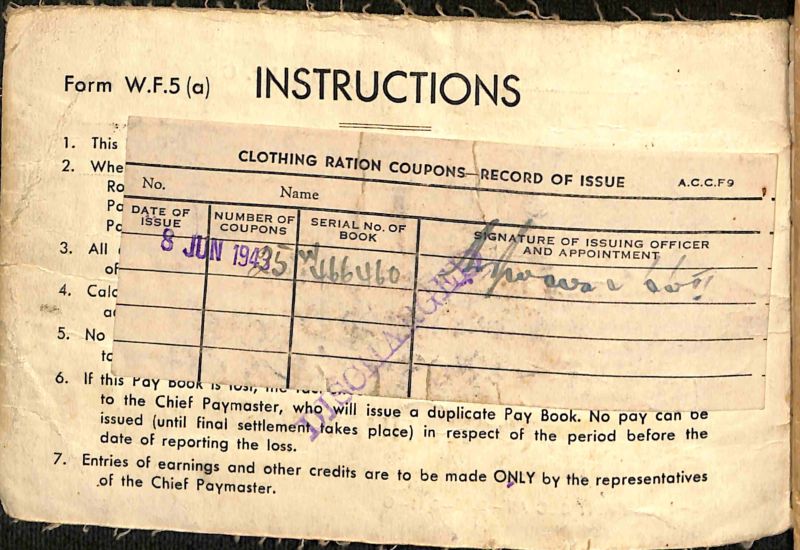 Form W.F.5 (a) INSTRUCTIONS
1. This
2. Whe
Ro
Pa
Pa
3. All
of
4. Calc
5. No
to
CLOTHING RATION COUPONS—RECORD OF ISSUE A.C.C.F9
No. Name
DATE OF ISSUE NUMBER OF COUPONS SERIAL NO. OF BOOK SIGNATURE OF ISSUING OFFICER AND APPOINTMENT
8 JUN 1943 35 W466460
DISCHARGED
6. If this Pay Book is lost, the
to the Chief Paymaster, who will issue a duplicate Pay Book. No pay can be
issued (until final settlement takes place) in respect of the period before the
date of reporting the loss.
7. Entries of earnings and other credits are to be made ONLY by the representatives
of the Chief Paymaster.